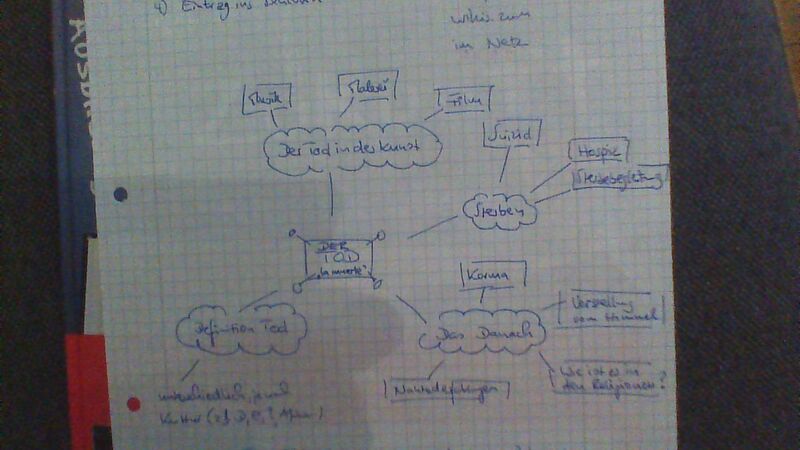 4) Eintrag ins
wikis zum
im Netz
Musik
Malerei
Film
Der Tod in der Kunst
Suizid
Hospiz
Sterbebegleitung
Sterben
DER
TOD
"la muerte"
Karma
Definition Tod
Das Danach
Vorstellung
vom Himmel
Wie ist es in
den Religionen?
Nahtoderfahrungen
unterschiedlich, je nach
Kultur